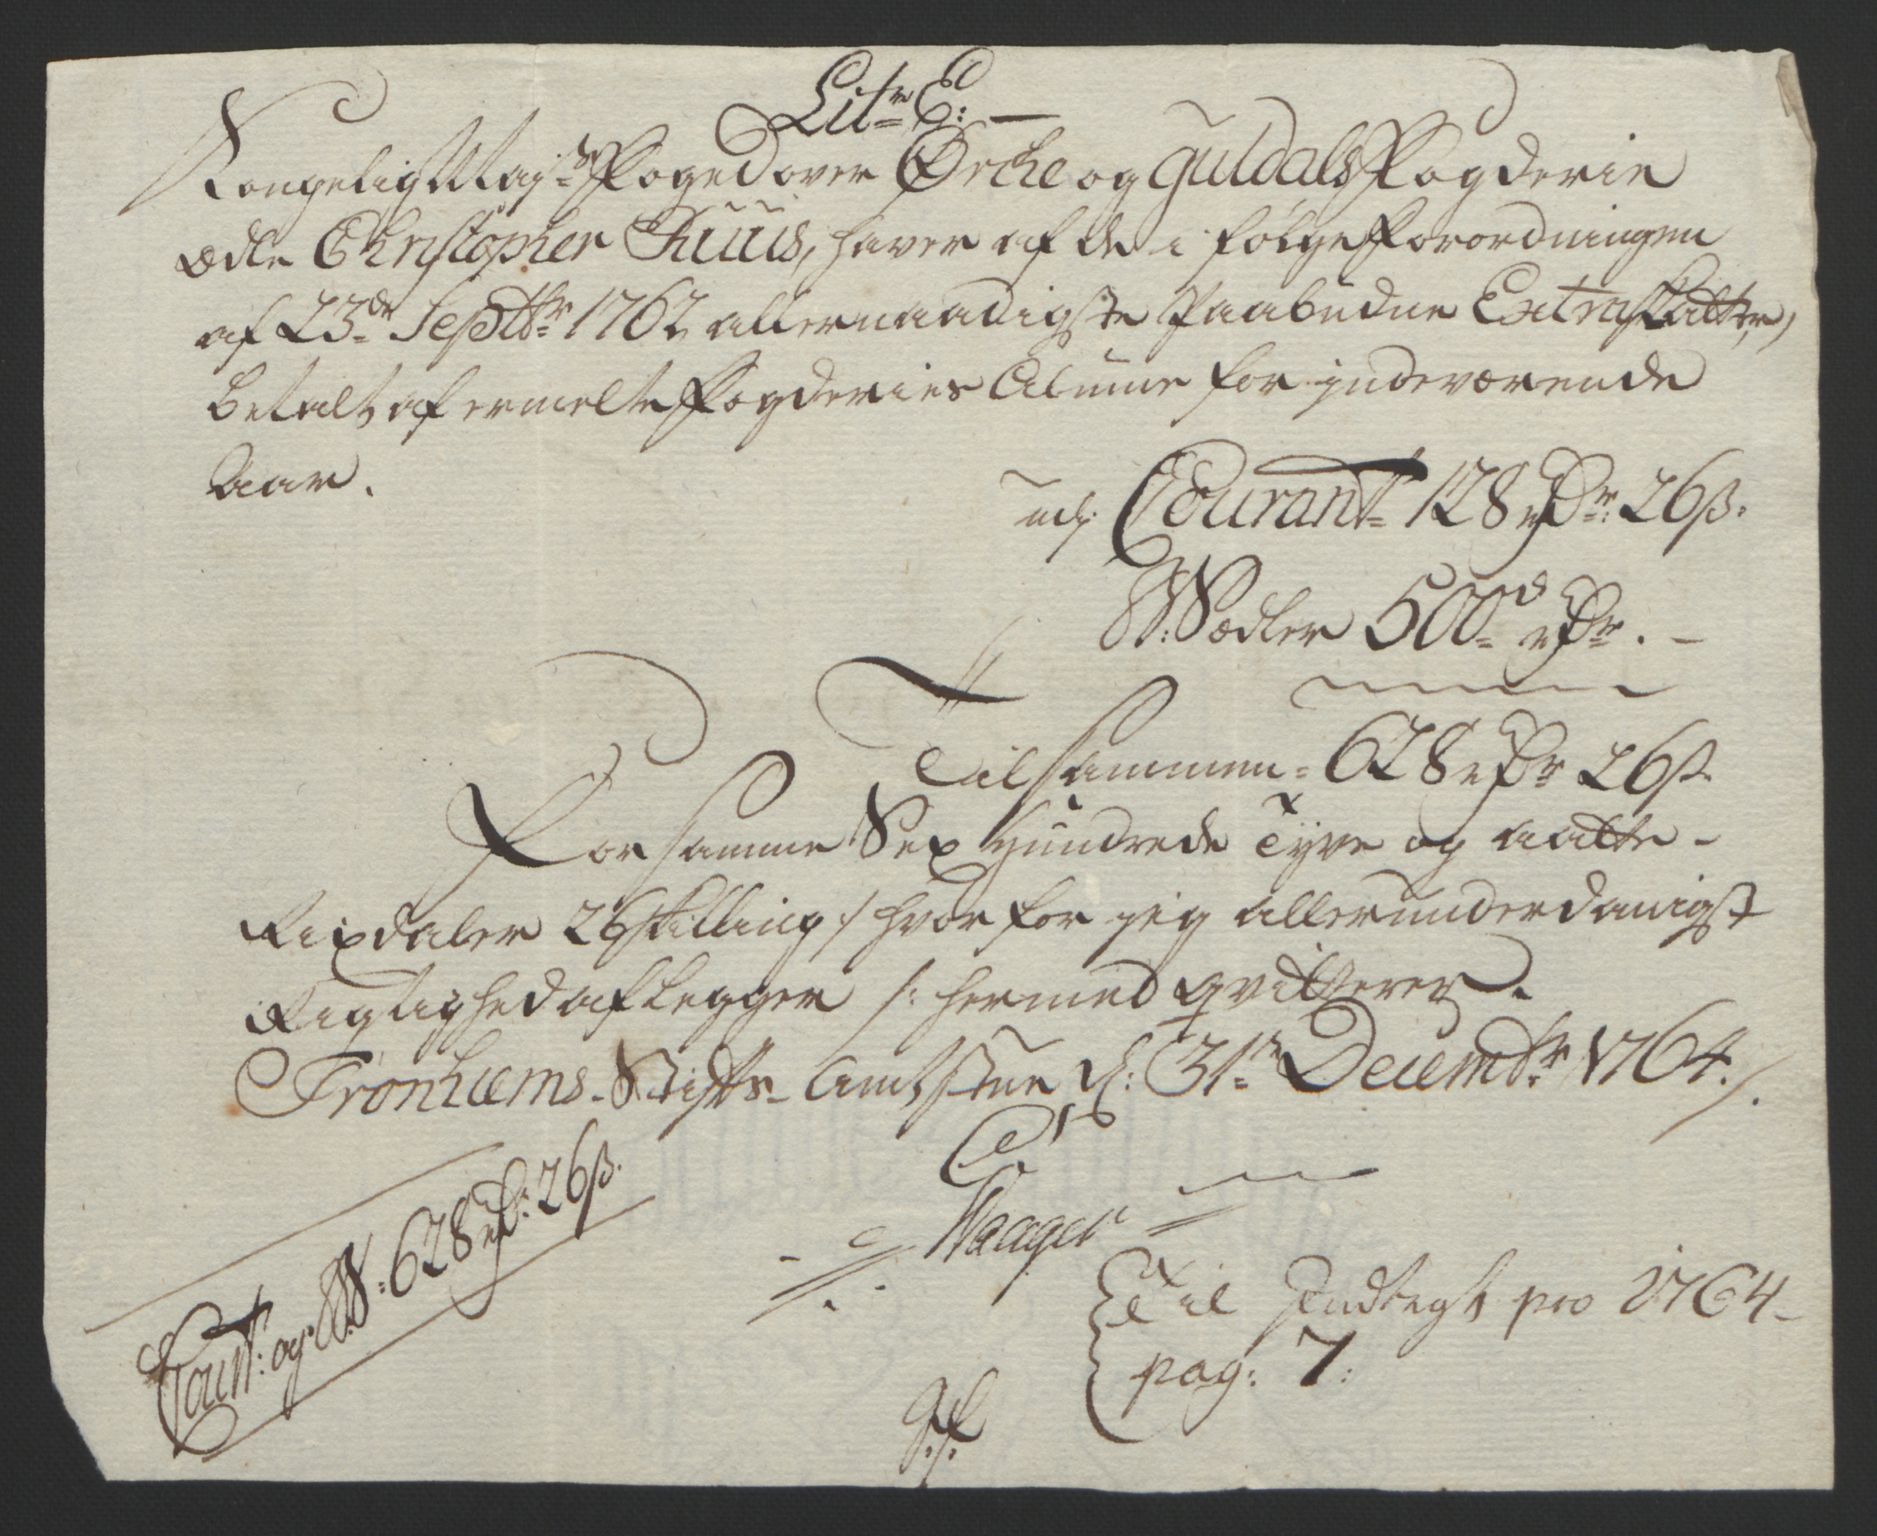 Litr E: —
Kongelig May:ts Foged over Ørche og Guldals Fogderie
Ædle Christopher Juuls, haver af de i følge Forordningen
af 23de Septbr 1762 allernaadigste Paabudne Extraskatter,
betalt af ermelte Fogderies Almue for indeværende
Aar.
udj Courant 128 rdr: 26 s.
B: Sedler 500d rdr. —
Tilsammen = 628 rdr 26 s.
For samme Sex Hundrede Tyve og aatte –
Rixdaler 26 skilling /: hvorfor jeg allerunderdanigst
Rigtighed aflegger /: hermed qvitterer.
Tronhiems Stifts Amtstue d: 31te Decembr 1764.
Waager
Cour: og B.S. 628 rd: 26 s.
Til Indtegt pro 1764
pag: 7: